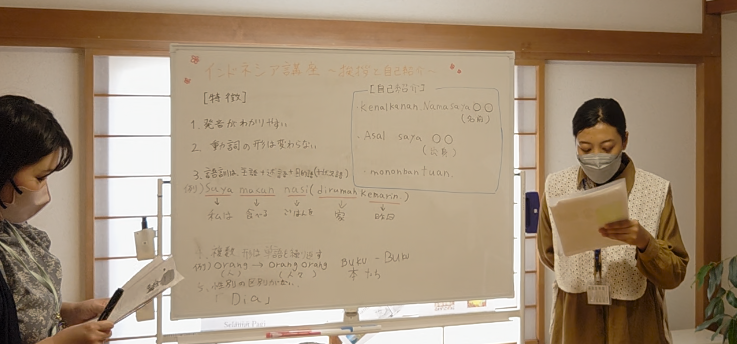 インドネシア講座 ～挨拶と自己紹介～
[特徴]
1. 発音がわかりやすい。
2. 動詞の形は変わらない。
3. 語順は、主語+述語+目的語
例) Saya makan nasi (dirumah kemarin)
↓ ↓ ↓ ↓ ↓
私は 食べる ごはんを 家 昨日
4. 複数形は単語を繰り返す
例) orang → orang orang
(人) (人々)
Buku - Buku
本たち
5. 性別の区別がない。
「Dia」
[自己紹介]
・Kenalkanan Nama saya ○○
(名前)
・Asal saya ○○
(出身)
tuan.
Selamat Pagi